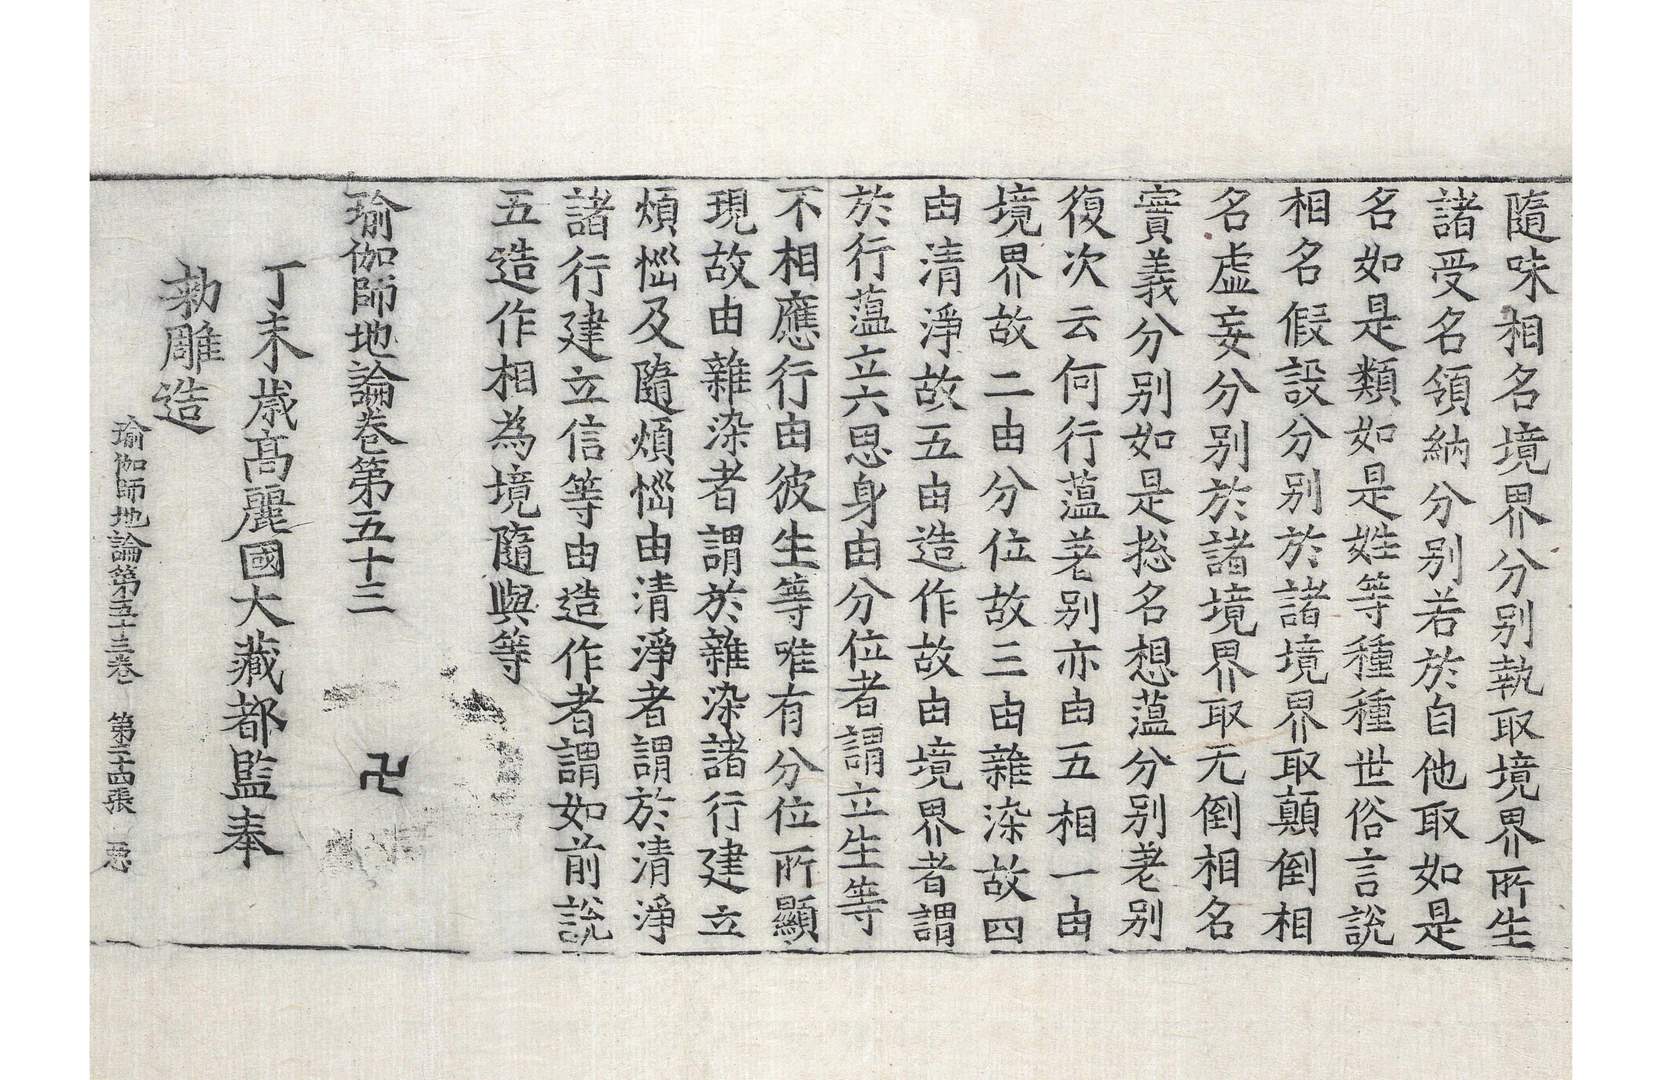 隨味相名境界分別執取境界所生
諸受名領納分別若於自他取如是
名如是類如是姓等種種世俗言說
相名假設分別於諸境界取顚倒相
名虛妄分別於諸境界取无倒相名
實義分別如是揔名想薀分別差別
復次云何行薀差別亦由五相一由
境界故二由分位故三由雜染故四
由清淨故五由造作故由境界者謂
於行薀立六思身由分位者謂立生等
不相應行由彼生等唯有分位所顯
現故由雜染者謂於雜染諸行建立
煩惱及隨煩惱由清淨者謂於清淨
諸行建立信等由造作者謂如前說
五造作相為境隨與等
瑜伽師地論卷第五十三 卍
丁未歲高麗國大藏都監奉
勑雕造
瑜伽師地論第五十三卷 第二十四張 惡